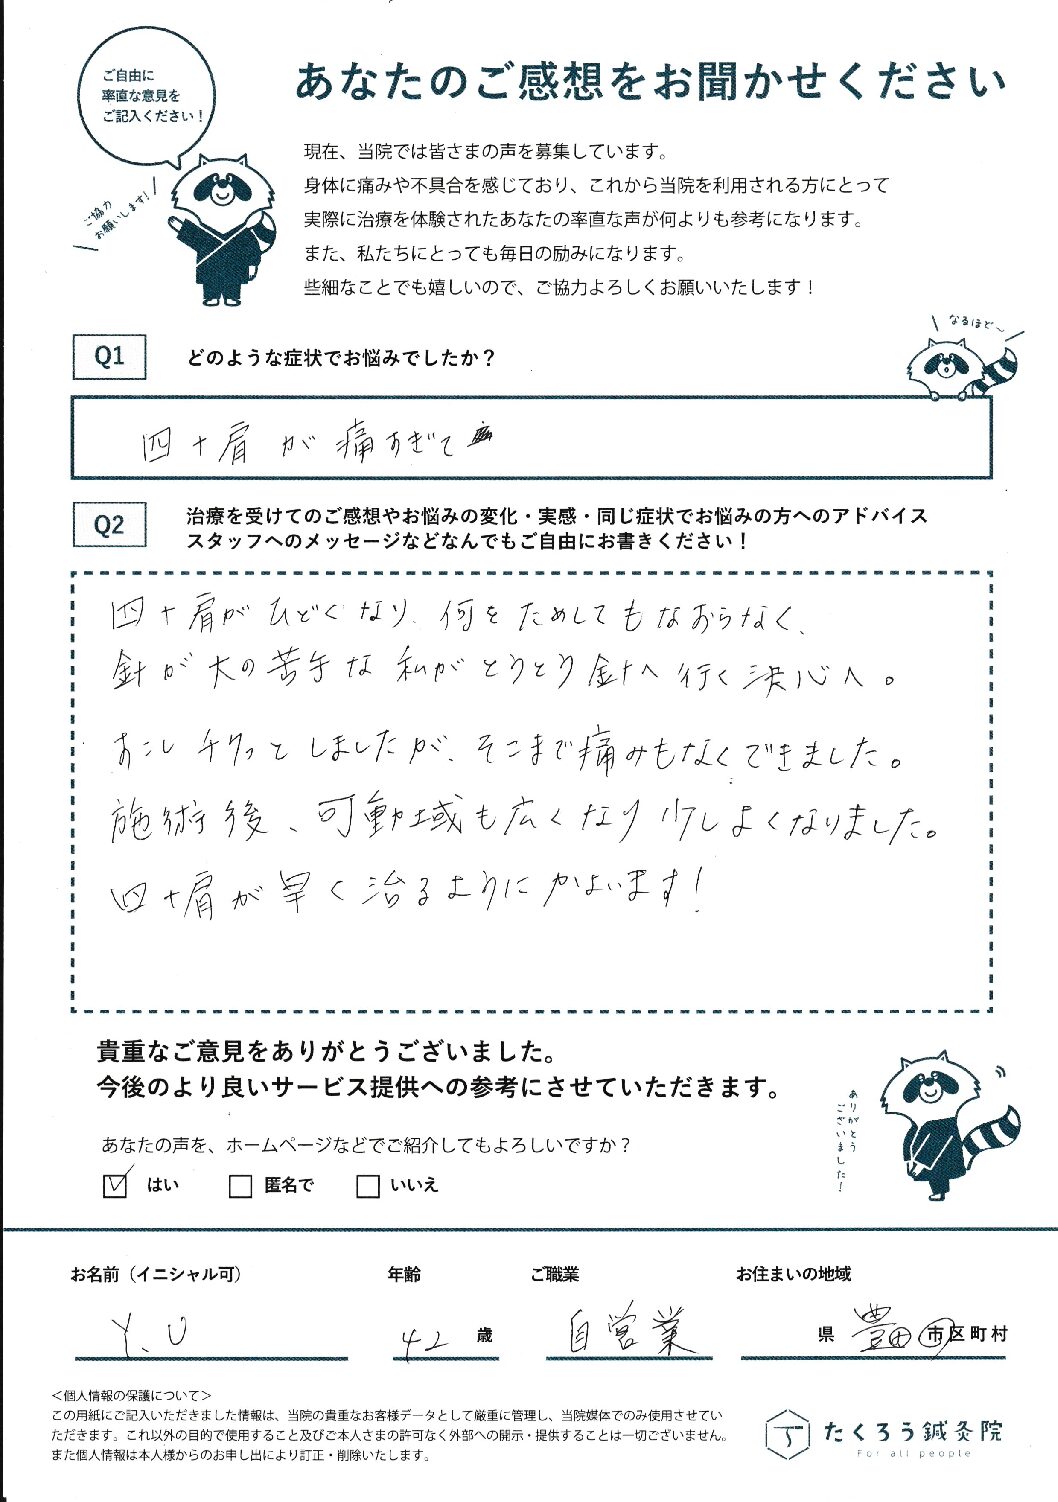 ご自由に
率直な意見を
ご記入ください！
ご協力
お願いします！
あなたのご感想をお聞かせください
現在、当院では皆さまの声を募集しています。
身体に痛みや不具合を感じており、これから当院を利用される方にとって
実際に治療を体験されたあなたの率直な声が何よりも参考になります。
また、私たちにとっても毎日の励みになります。
些細なことでも嬉しいので、ご協力よろしくお願いいたします！
なるほど〜
Q1 どのような症状でお悩みでしたか？
四十肩が痛すぎて
Q2 治療を受けてのご感想やお悩みの変化・実感・同じ症状でお悩みの方へのアドバイス
スタッフへのメッセージなどなんでもご自由にお書きください！
四十肩がひどくなり、何をためしてもなおらなく、
針が大の苦手な私がとうとう針へ行く決心へ。
すこしチクッとしましたが、そこまで痛みもなくできました。
施術後、可動域も広くなり少しよくなりました。
四十肩が早く治るようにかよいます！
貴重なご意見をありがとうございました。
今後のより良いサービス提供への参考にさせていただきます。
ありがとう
ございました！
あなたの声を、ホームページなどでご紹介してもよろしいですか？
はい 匿名で いいえ
お名前（イニシャル可） 年齢 ご職業 お住まいの地域
Y.U 42 歳 自営業 県 豊田 市区町村
＜個人情報の保護について＞
この用紙にご記入いただきました情報は、当院の貴重なお客様データとして厳重に管理し、当院媒体でのみ使用させてい
ただきます。これ以外の目的で使用すること及びご本人さまの許可なく外部への開示・提供することは一切ございません。
また個人情報は本人様からのお申し出により訂正・削除いたします。
たくろう鍼灸院
For all people